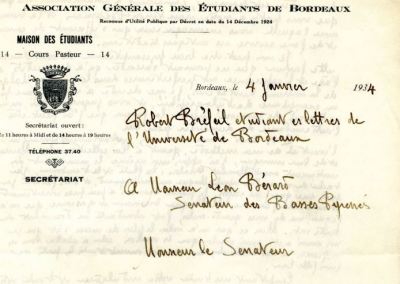 ASSOCIATION GÉNÉRALE DES ÉTUDIANTS DE BORDEAUX
Reconnue d'Utilité Publique par Décret en date du 14 Décembre 1924
MAISON DES ÉTUDIANTS
14 — Cours Pasteur — 14
Secrétariat ouvert :
de 11 heures à Midi et de 14 heures à 19 heures
TÉLÉPHONE 37.40
SECRÉTARIAT
Bordeaux, le 4 Janvier 1934
Robert étudiant es lettres de
l'Université de Bordeaux
A Monsieur Léon Bérard
Senateur des Basses Pyrenées
Monsieur le Senateur